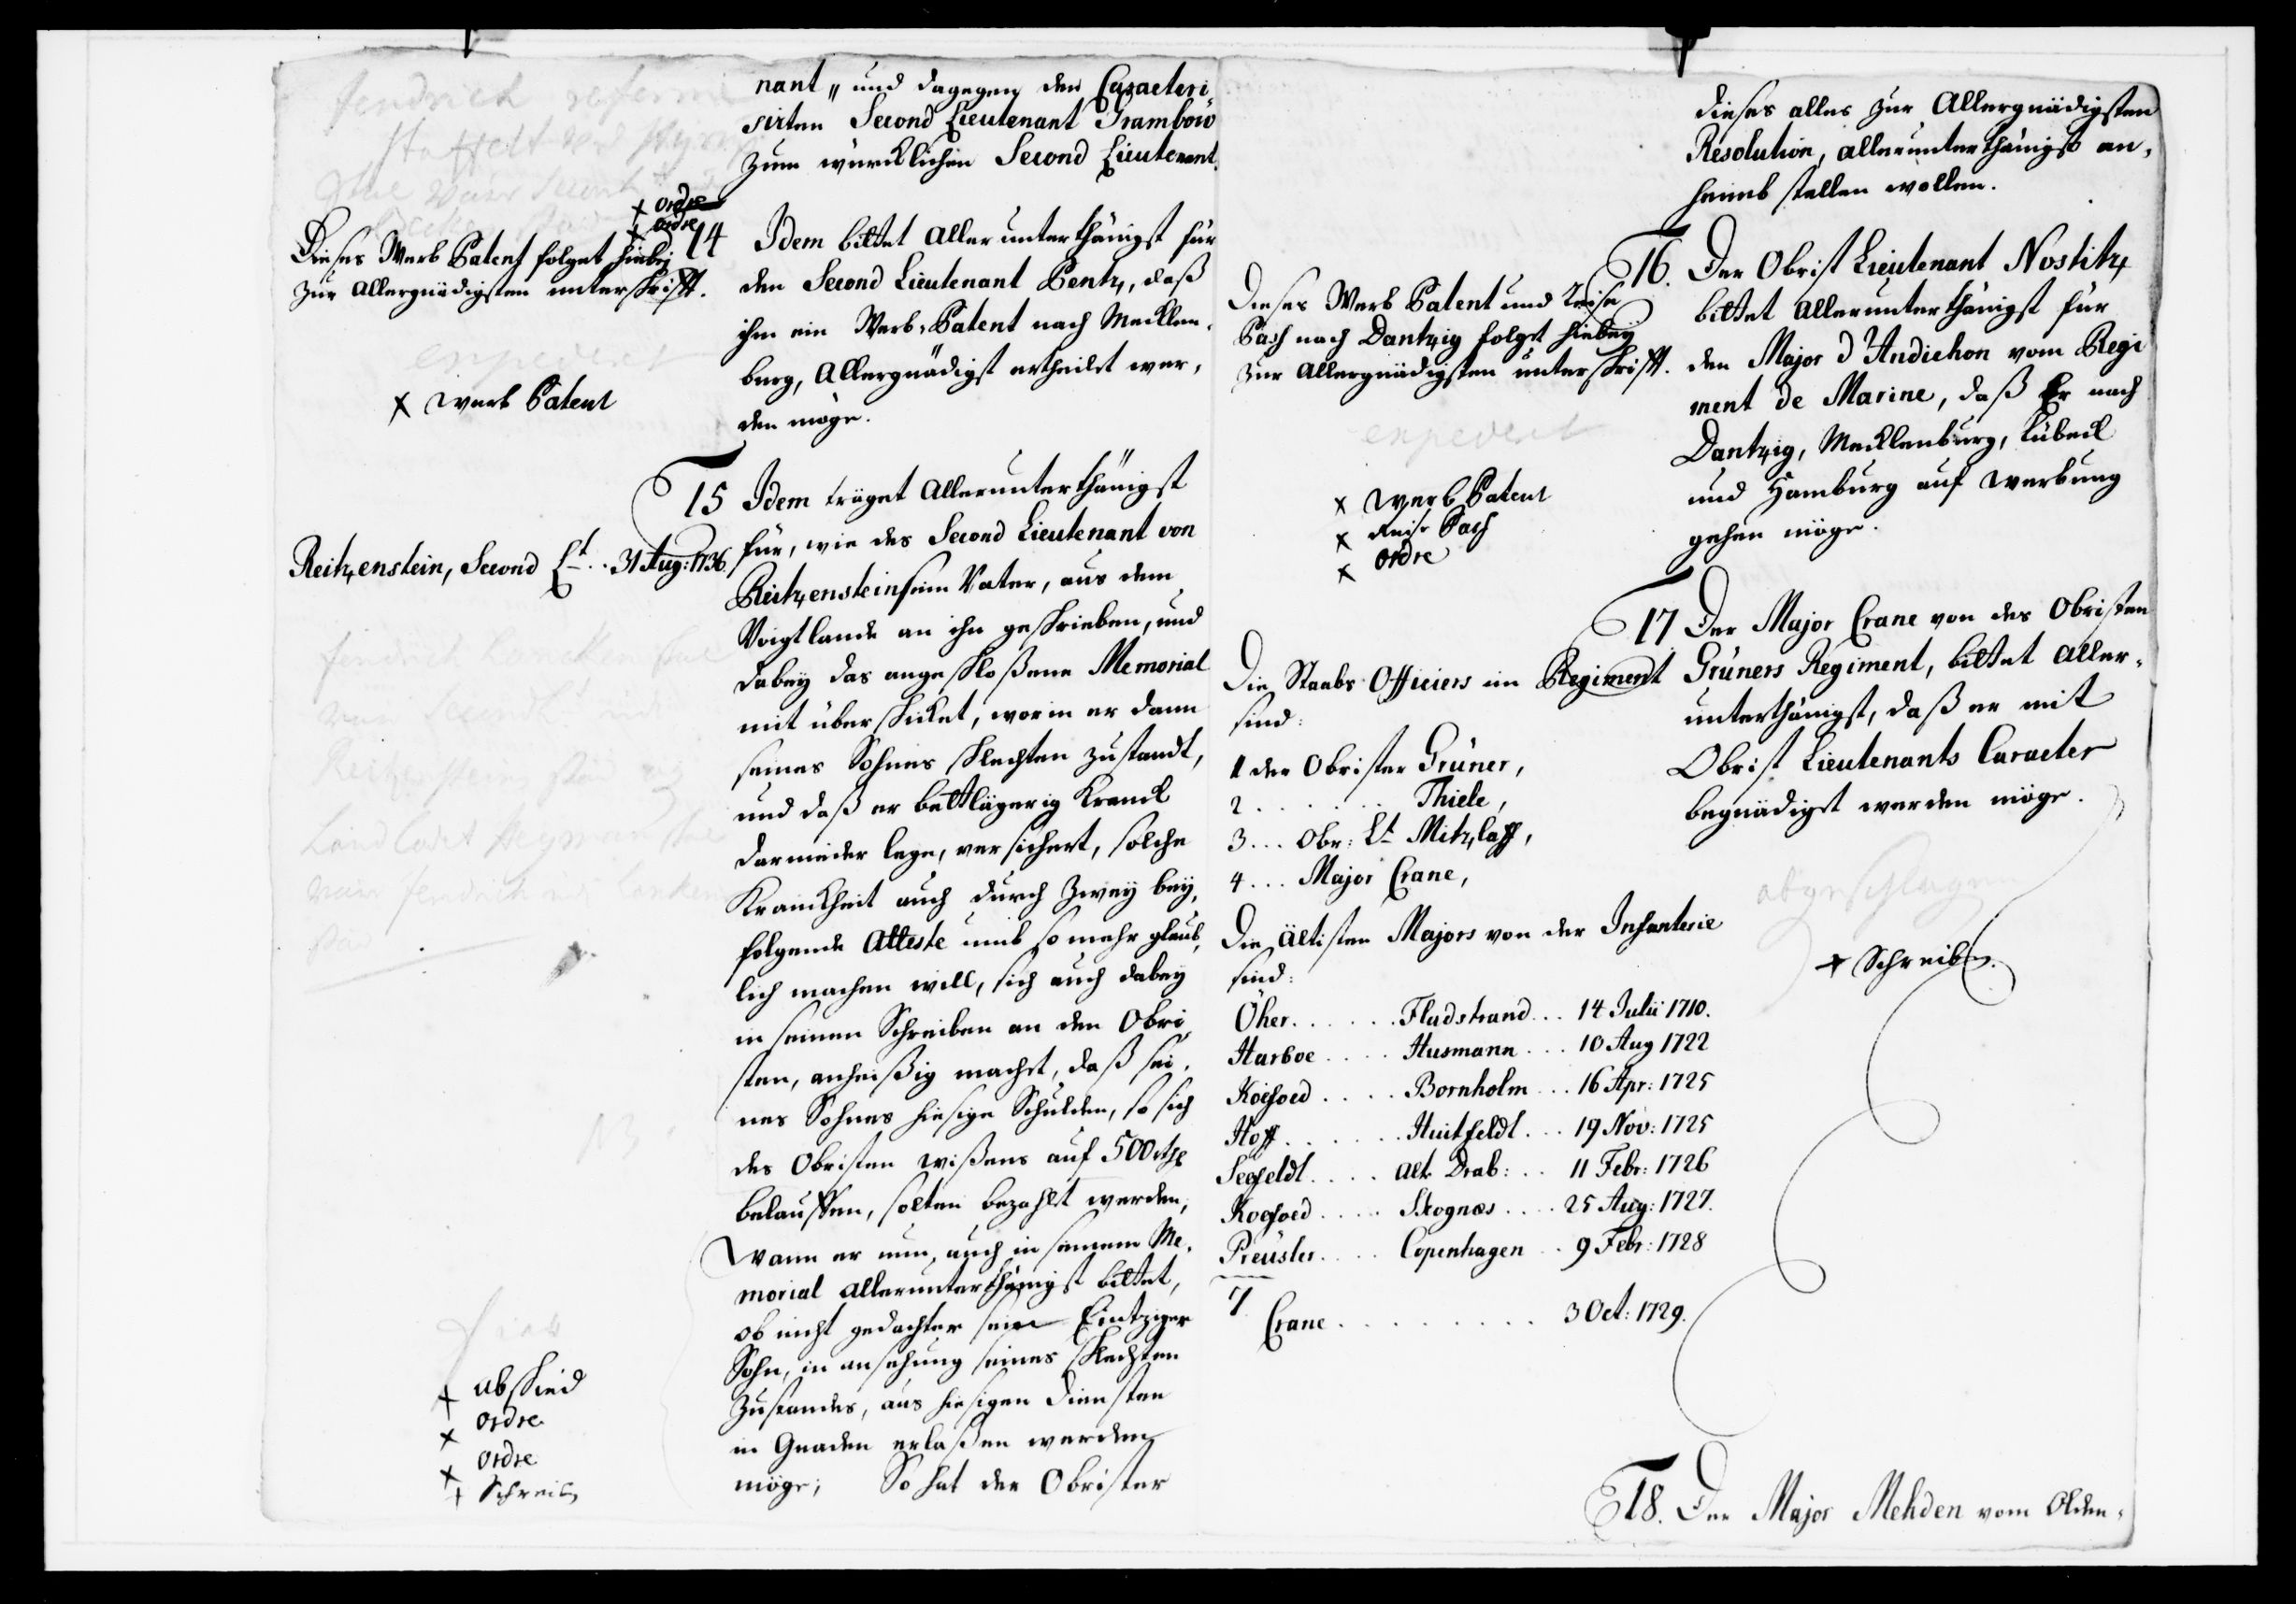 nant„ und dagegen den Caracteri-
sirten Second Lieutenant Grambow
zum würcklichen Second Lieutenant.
+ ordre
+ ordre
Dieses Werb Patent folget hiebey
zur Allergnädigsten unterschrifft.
expedert
+ Werb Patent
14 Idem bittet Allerunterthänigst für
den Second Lieutenant Pentz, daß
ihm ein Werb-Patent nach Mecklen-
burg, Allergnädigst ertheilet wer-
den möge.
15 Idem träget Allerunterthänigst
für, wie des Second Lieutenant von
Reitzenstein sein Vater, aus dem
Voigtlande an ihn geschrieben, und
dabey das angeschloßene Memorial
mit überschicket, worin er dann
seines Sohnes schlechten zustandt,
und daß er bettlägerig Kranck
darnieder lege, versichert, solche
Kranckheit auch durch zwey bey-
folgende Atteste umb so mehr glaub-
lich machen will, sich auch dabey
in seinem Schreiben an den Obri-
sten, anheißig macht, daß sei-
nes Sohnes hiesige Schulden, so sich
des Obristen wißens auf 500 rthlr
belauffen, solten bezahlt werden,
Wann er nun, auch in seinem Me-
morial allerunterthänigst bittet,
ob nicht gedachter sein Eintziger
Sohn, in ansehung seines schlechten
Zustandes, aus hiesigen Diensten
in Gnaden erlaßen werden
möge; So hat der Obrister
Reitzenstein, Second Lt. . 31 Aug: 1736.
+ Abschied
+ ordre
+ ordre
+ Schreib
dieses alles zur Allergnädigsten
Resolution, allerunterthänigst an-
heimb stellen wollen.
16. Der Obrist Lieutenant Nostitz
bittet Allerunterthänigst für
den Major d'Andichon vom Regi
ment de Marine, daß Er nach
Dantzig, Mecklenburg, Lübeck
und Hamburg auf Werbung
gehen möge.
Dieses Werb Patent und Reise
Pass nach Dantzig folget hiebey
zur Allergnädigsten unterschrifft.
expedert
+ Werb Patent
+ Reise Pass
+ ordre
17 Der Major Crane von des Obristen
Grüners Regiment, bittet Aller-
unterthänigst, daß er mit
Obrist Lieutenants Caracter
begnädiget werden möge.
abgeschlagen
+ Schreiben.
Die Staabs Officiers im Regiment
sind:
1 der Obrister Grüner,
2 . . . . . . . Thiele,
3 . . . Obr: Lt Mitzlaff,
4 . . . Major Crane,
Die ältisten Majors von der Infanterie
sind:
Öher . . . . . . Fladstrand . . . 14 Julii 1710.
Harboe . . . . Husmann . . . 10 Aug 1722
Koefoed . . . . Bornholm . . . 16 Apr: 1725
Hoff . . . . . . Huitfeldt . . . 19 Nov: 1725
Seefeldt . . . . Alt Drab: . . 11 Febr: 1726
Koefoed . . . . Skognes . . . . 25 Aug: 1727.
Preüsler . . . . Copenhagen . . 9 Febr: 1728
7
Crane . . . . . . . . . 3 Oct: 1729.
18. Der Major Mehden vom Olden-